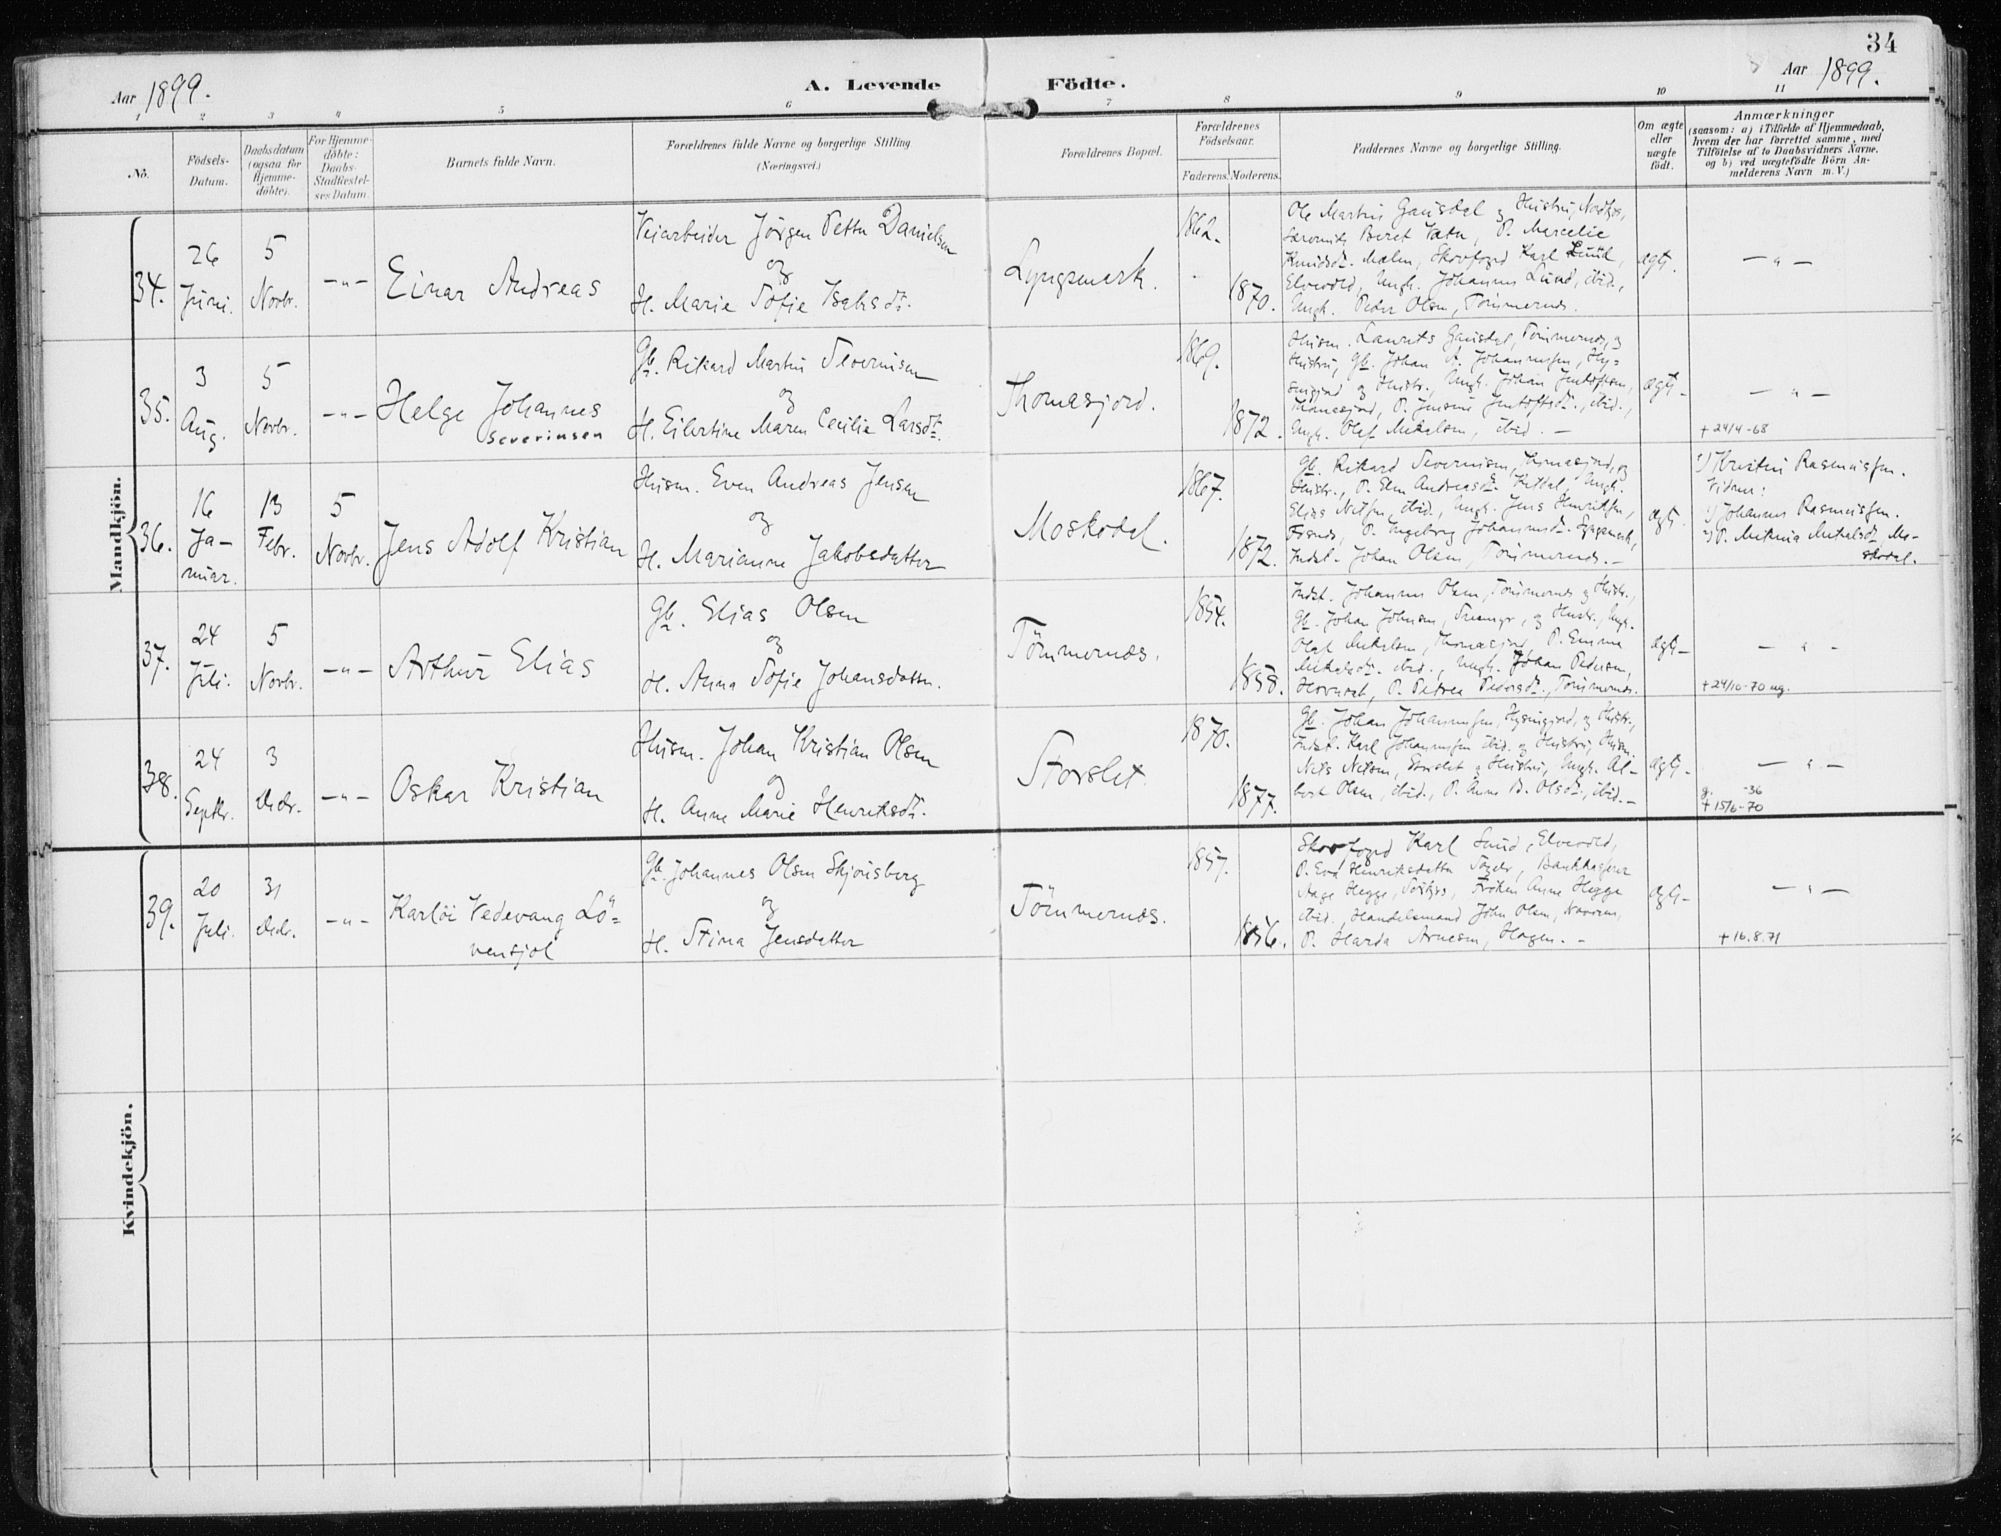 34
Aar 1899.
A. Levende Födte.
Aar 1899.
1 2 3 4 5 6 7 8 9 10 11
No.
Födsels-
Datum.
Daabsdatum
(ogsaa for
Hjemme-
döbte).
For Hjemme-
döbte:
Daabs-
Stadfæstel-
ses Datum.
Barnets fulde Navn.
Forældrenes fulde Navne og borgerlige Stilling
(Næringsvei.)
Forældrenes Bopæl.
Forældrenes
Födselsaar.
Faderens. Moderens.
Faddernes Navne og borgerlige Stilling.
Om ægte
eller
uægte
födt.
Anmærkninger
(saasom: a) i Tilfælde af Hjemmedaab,
hvem der har forrettet samme, med
Tilföielse af to Daabsvidners Navne,
og b) ved uægtefödte Börn An-
melderens Navn m. V.)
Mandkjön.
34.
26
Juni.
5
Novbr.
-"-
Einar Andreas
Veiarbeider Jörgen Petter Danielsen
og
H. Marie Sofie Isaksdt.
Lyngsmerk.
1862.
1870.
Ole Martin Gausdal og Hustru,
Beret P.
Knudsdt. Malm, Skovfoged Karl Lund,
Elvevold, Ungk. Johannes Lund, ibid.,
Ungk. Peder Olsen, Tömmernes.
ægt.
-"-
35.
3
Aug.
5
Novbr.
-"-
Helge Johannes
Severinsen
Gb. Rikard Martin Severinsen
og
H. Eilertine Maren Cecilie Larsdt.
Thomasjord.
1869.
1872.
Husm. Laurits Gausdal, Tömmernes, og
Hustru, Gb. Johan A. Johannessen,
og Hustr., Ungk. Johan
Thomasjord, P. Jensine ibid.,
Ungk. Olaf Mikalsen, ibid. -
ægt-
-"-
+ 24/4-68
36.
16
Ja-
nuar.
13
Febr.
5
Novbr.
Jens Adolf Kristian
Husm. Even Andreas Jensen
og
H. Marianne Jakobsdatter
Moskodal.
1867.
1872.
Gb. Rikard Severinsen, Thomasjord, og
Hustr., P. Andreasdt. Kittdal, Ungk.
Elias Nilsen, ibid., Ungk. Jens Henriksen,
P. Ingeborg Johannesdt.
Indst. Johan Olsen, Tömmernes. -
ægt.
1) Kristine Rasmussen.
Vidner:
1) Johannes Rasmussen.
2) P. Mikalsdt, Mo-
skodal.
37.
24
Juli.
5
Novbr.
-"-
Arthur Elias
Gb. Elias Olsen
og
H. Anna Sofie Johansdatter.
Tömmernes.
1854.
1858.
Indst. Johannes Olsen, Tömmernes og Hustr.,
Gb. Johan Johnsen, og Hustr., Ungk.
Olaf Mikalsen, Thomasjord, P. Emma
Mikalsdt. ibid., Ungk. Johan Pedersen,
P. Petrea Pedersdt., Tömmernes.
ægt-
-"-
+ 24/10-70 ug.
38.
24
Septbr.
3
Decbr.
-"-
Oskar Kristian
Husm. Johan Kristian Olsen
og
H. Anne Marie Henriksdt.
Storslet.
1870.
1877.
Gb. Johan Johannessen, og Hustr.,
Indst. Karl Johannessen ibid. og Hustru, Husm.
Nils Nilsen, Storslet og Hustru, Ungk. Al-
bert Olsen, ibid., P. Anne B. Olsdt., ibid. -
ægt-
-"-
g. -36
+ 15/6-70
Kvindekjön.
39.
20
Juli.
31
Decbr.
-"-
Karlöi Vedevang Lö-
vensjol
Gb. Johannes Olsen Skjönsberg
og
H. Stina Jensdatter
Tömmernes.
1857.
1856.
Skovfoged Karl Lund, Elvevold,
P. Eva Henriksdatter Bankkasserer
Aage Hegge, Fröken Anne Hegge
ibid., Handelsmand John Olsen,
P. Harda Arnesen, Hagen. -
ægt-
-"-
+ 16.8.71